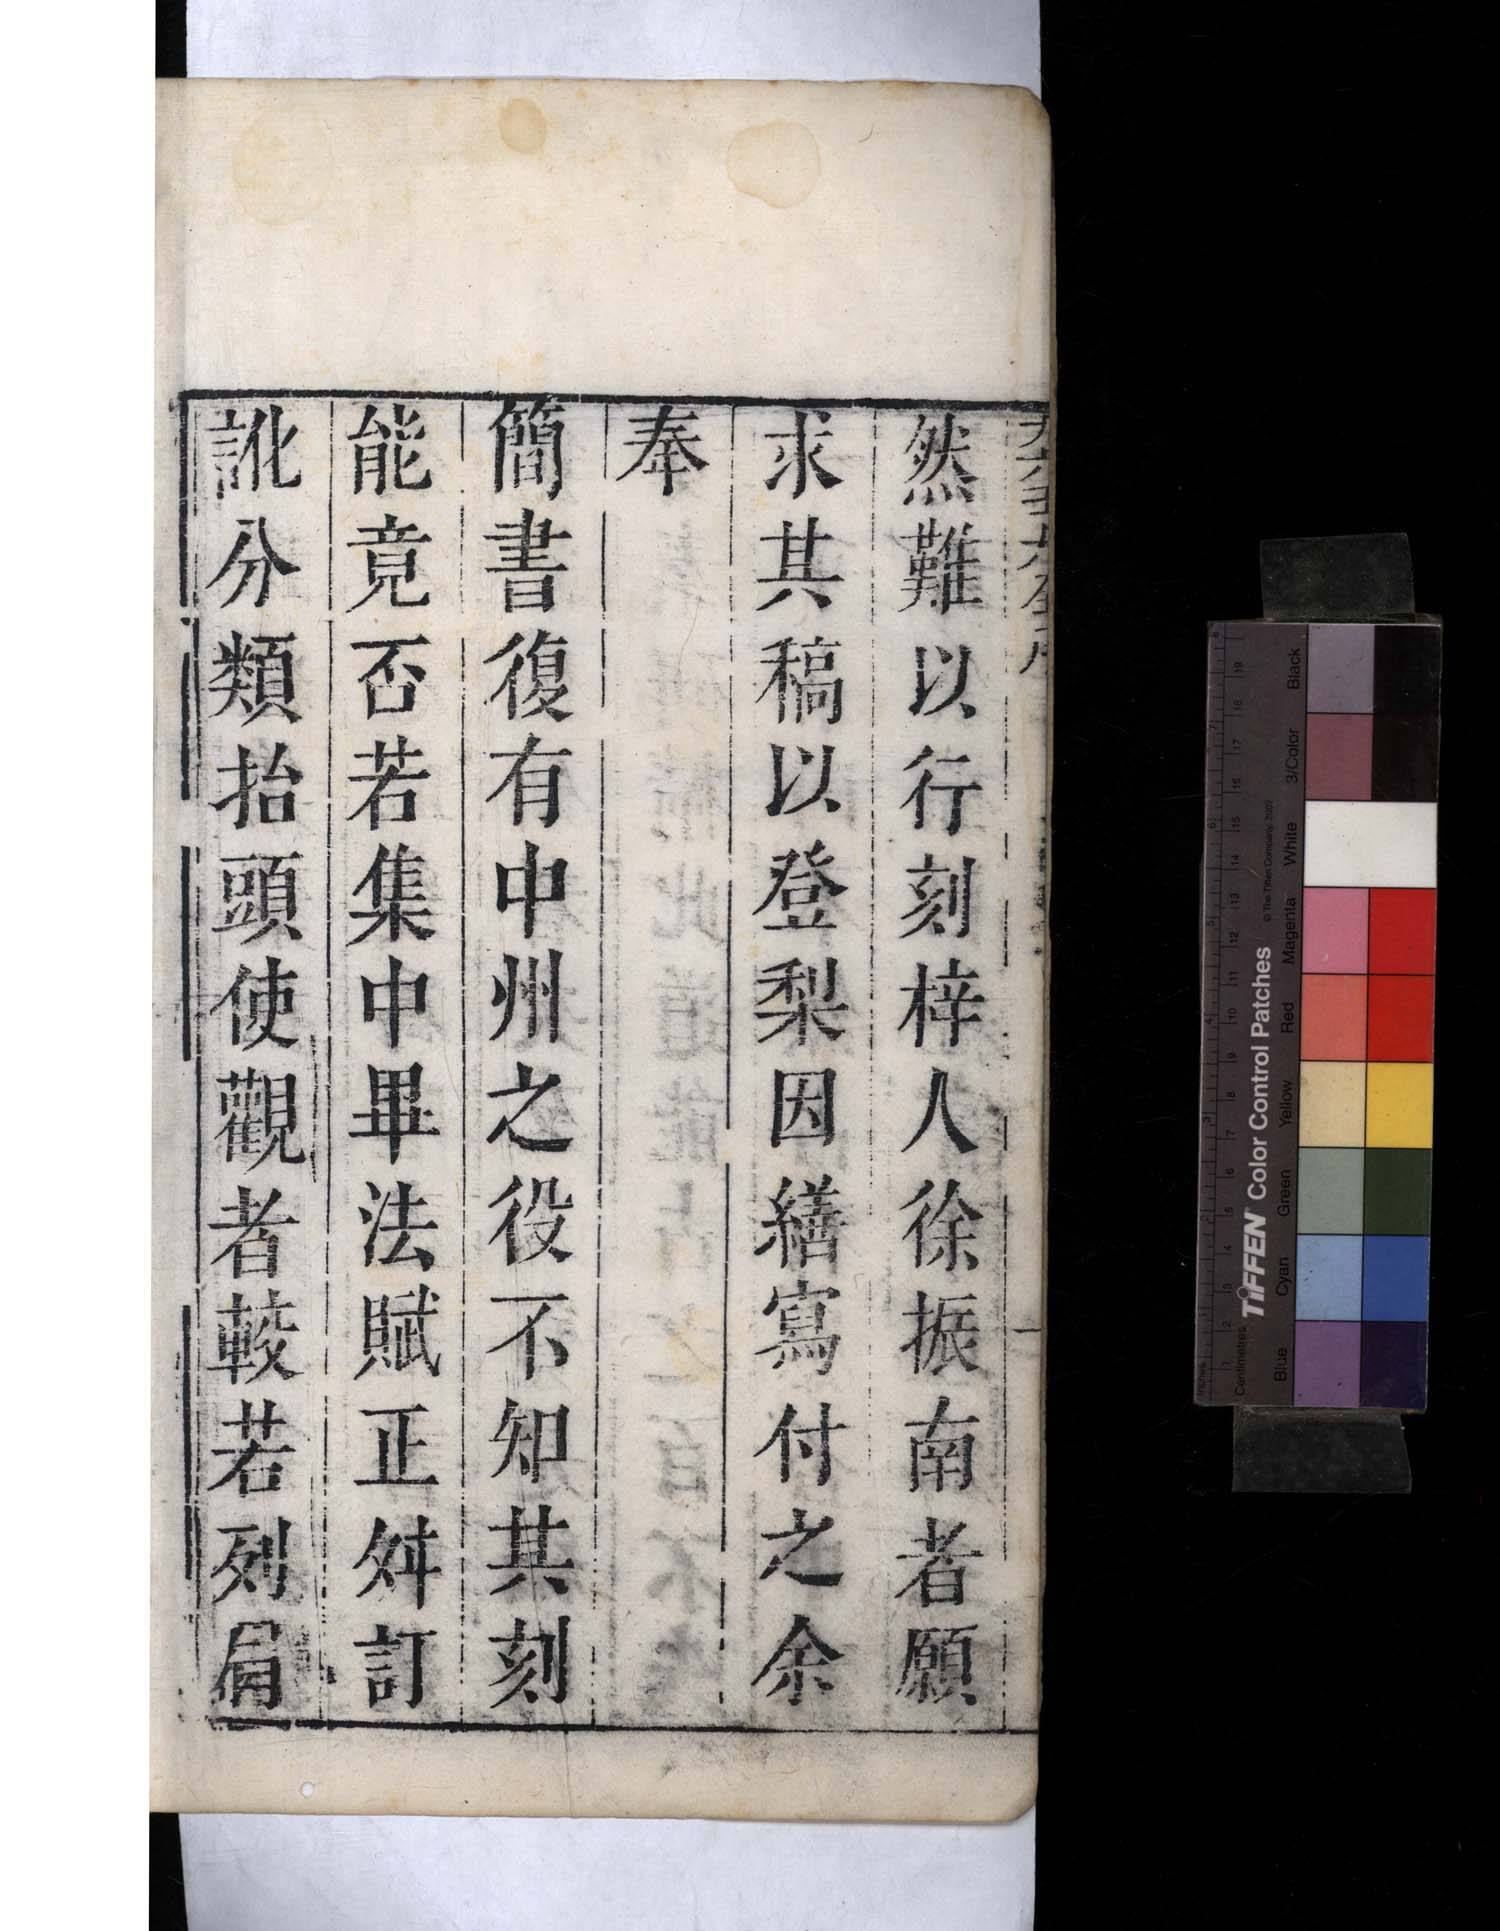 然難以行刻梓人徐振南者願
求其稿以登梨因繕寫付之余
奉
簡書復有中州之役不知其刻
能竟否若集中畢法賦正舛訂
訛分類抬頭使觀者較若列眉
Inches
Centimetres
TIFFEN Color Control Patches
© The Tiffen Company, 2007
Blue
Cyan
Green
Yellow
Red
Magenta
White
3/Color
Black